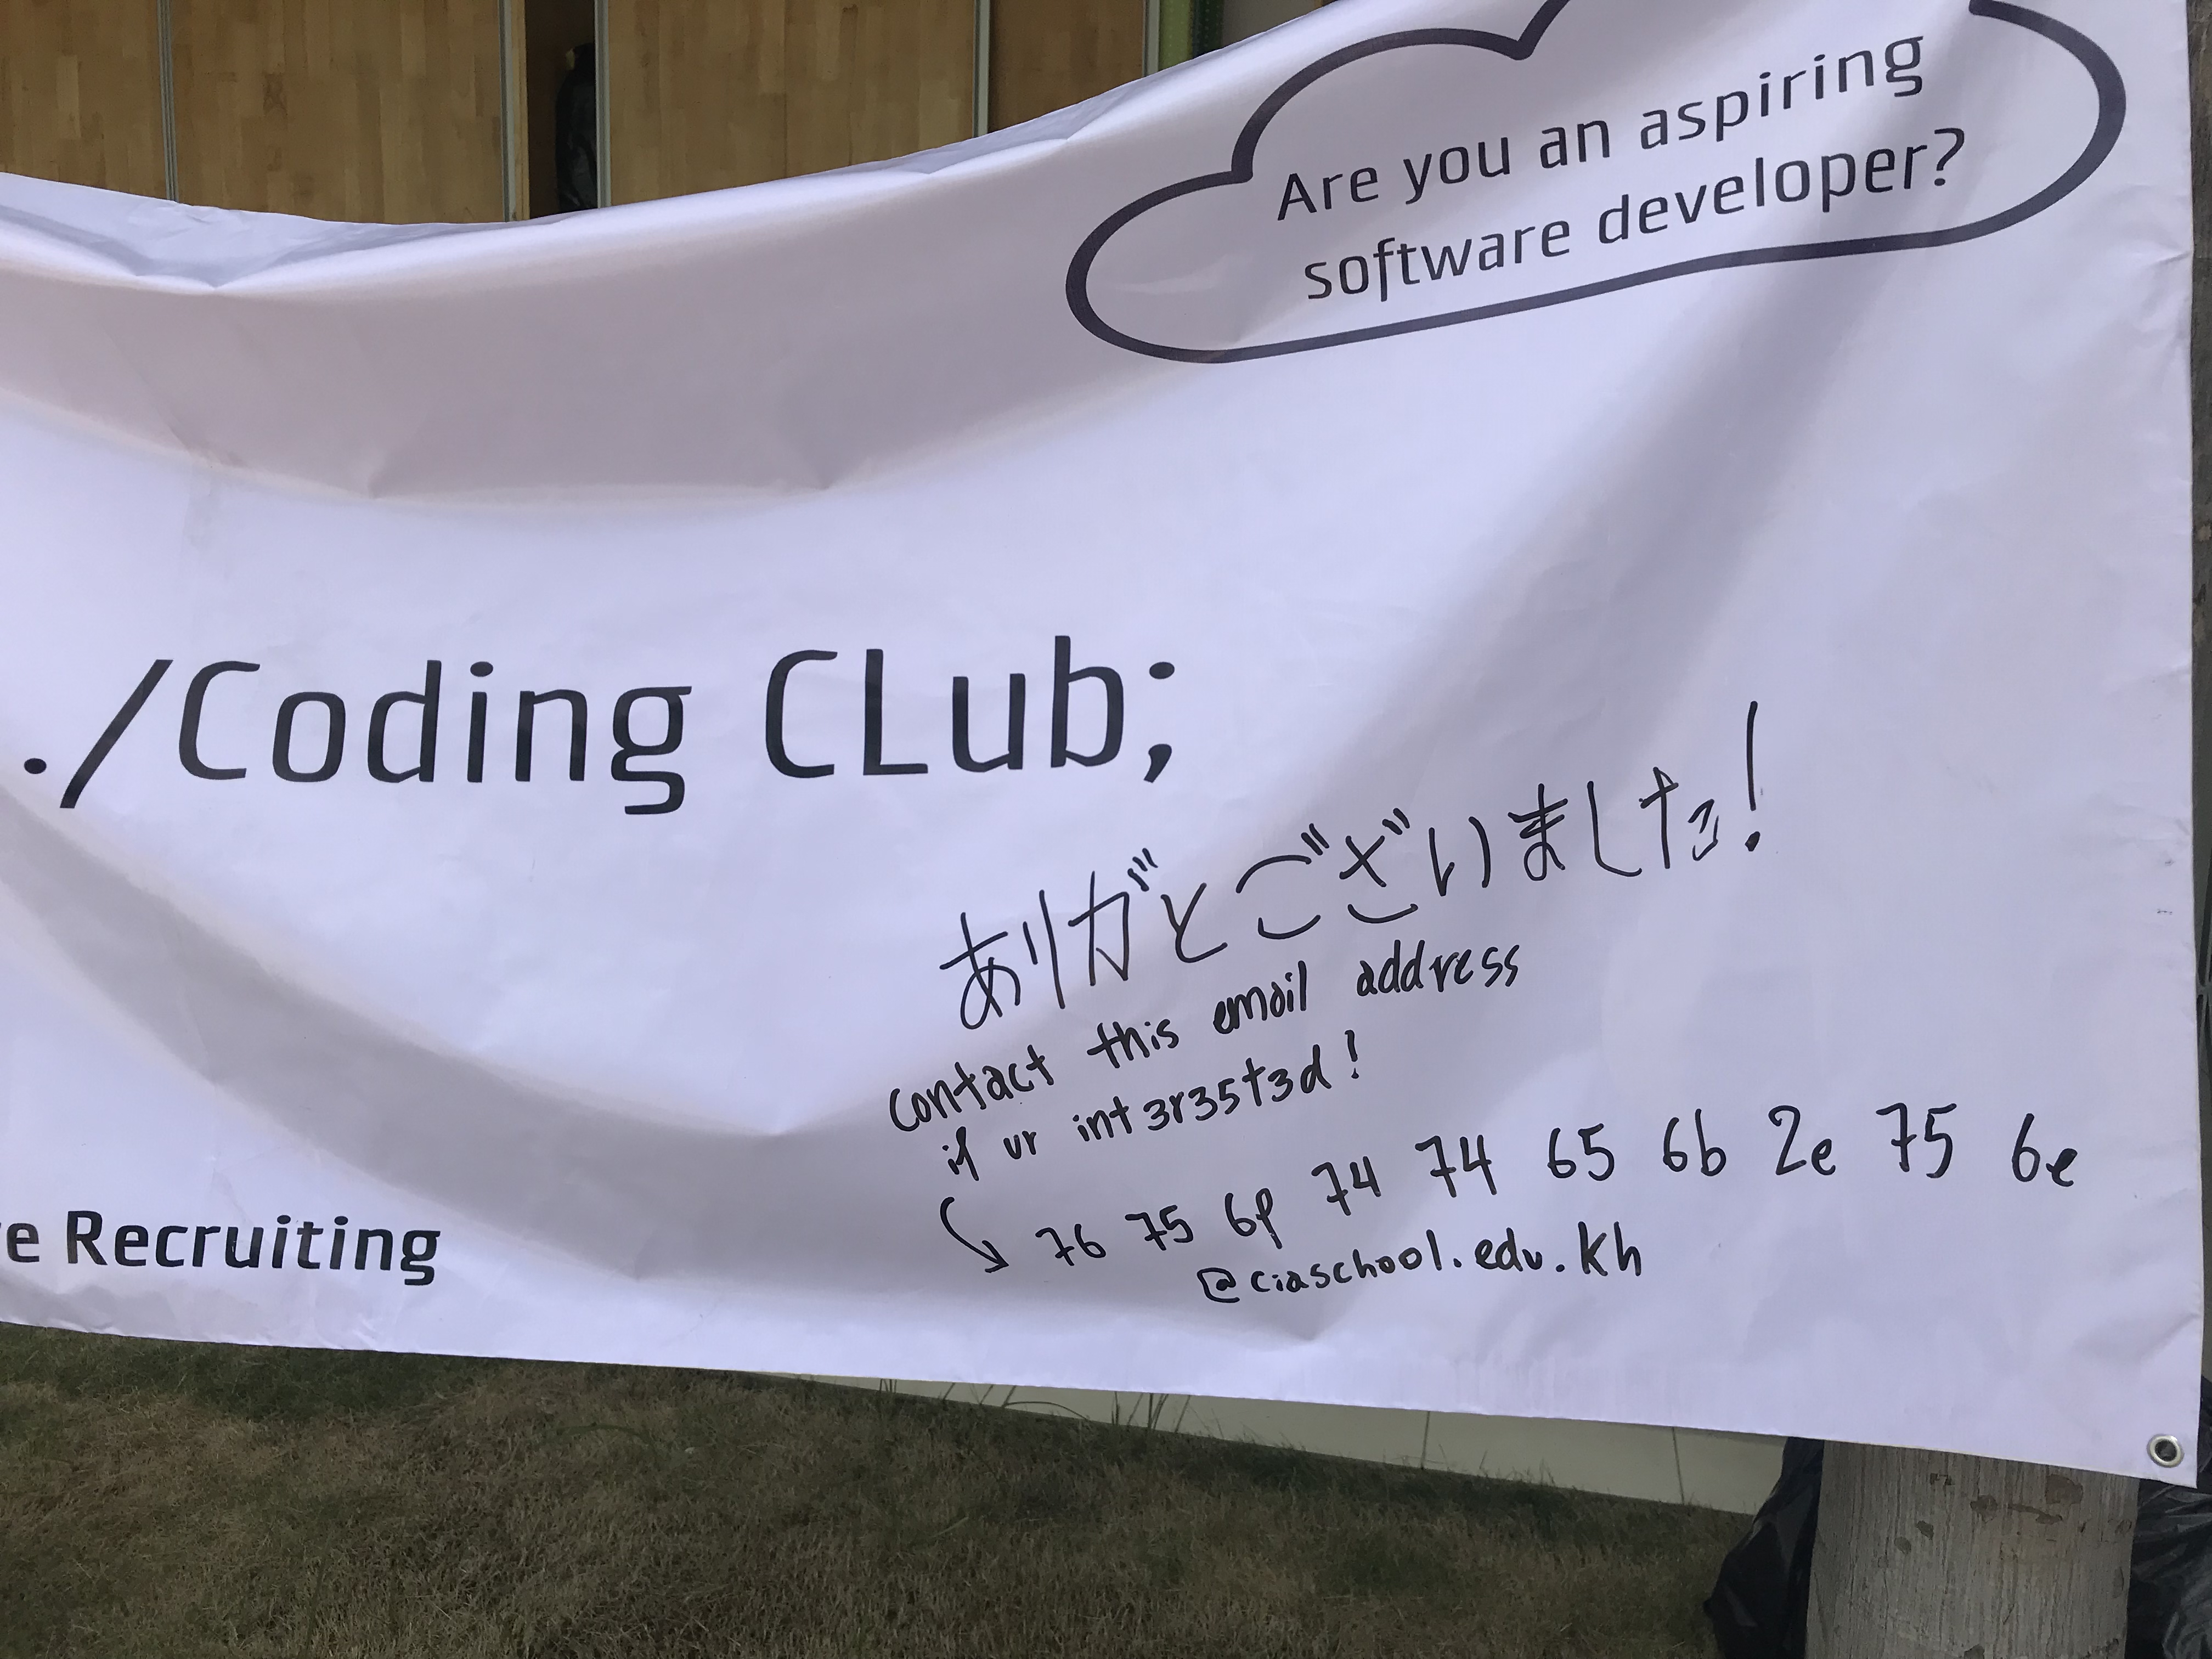 Are you an aspiring
software developer?
./Coding CLub;
ありがとございました!
contact this email address
if ur int3r35t3d!
76 75 6f 74 74 65 6b 2e 75 6e
@ciaschool.edu.kh
e Recruiting